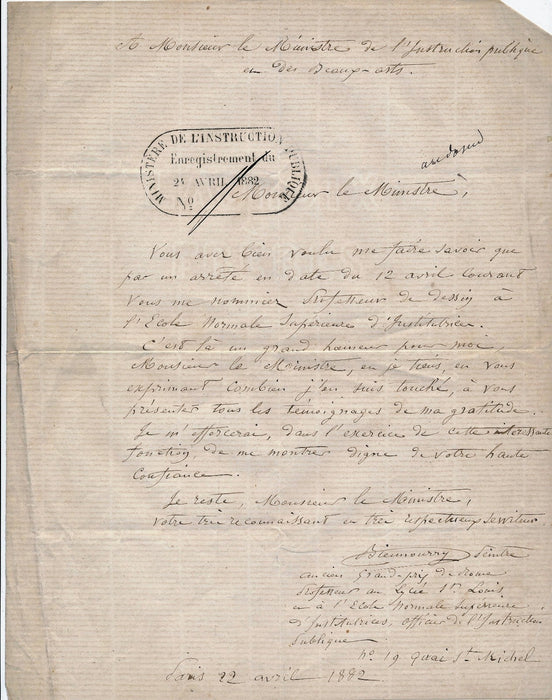 A Monsieur le Ministre de l'Instruction publique
et des Beaux-arts.
MINISTÈRE DE L'INSTRUCTION PUBLIQUE
Enregistrement du
24 AVRIL 1882
No
Monsieur le Ministre,
Vous avez bien voulu me faire savoir que
par un arrêté en date du 12 avril courant
vous me nommiez Professeur de dessin à
l'Ecole Normale Supérieure d'Institutrices.
C'est là un grand honneur pour moi,
Monsieur le Ministre, et je tiens, en vous
exprimant combien j'en suis touché, à vous
présenter tous les témoignages de ma gratitude.
Je m'efforcerai, dans l'exercice de cette
fonction, de me montrer digne de votre haute
confiance.
Je reste, Monsieur le Ministre,
votre très reconnaissant et très respectueux serviteur
Biennourry Peintre
ancien Grand-prix de Rome
Professeur au Lycée St. Louis
et à l'Ecole Normale Supérieure
d'Institutrices, officier de l'Instruction
Publique
No. 19 quai St. Michel
Paris 22 avril 1882